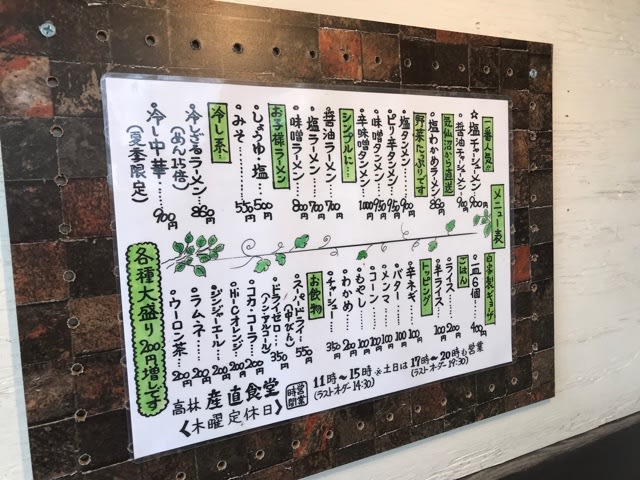 メニュー表
一番人気の
☆塩チャーシューメン…900円
醤油チャーシューメン…900円
気仙沼から直送
塩わかめラーメン…860円
野菜たっぷりです
塩タンメン…900円
ピリ辛タンメン…950円
味噌タンメン…950円
辛味噌タンメン…1000円
シンプルに…
醤油ラーメン…700円
塩ラーメン…700円
味噌ラーメン…800円
お子様ラーメン
しょうゆ・塩…500円
みそ…550円
冷し系…
冷しざるラーメン…860円
(めん1.5倍)
冷し中華…900円
(夏季限定)
自家製ギョーザ
一皿6個…400円
ごはん
ライス…200円
半ライス…150円
トッピング
辛ネギ…100円
バター…100円
メンマ…100円
コーン…100円
もやし…100円
わかめ…200円
チャーシュー…350円
お飲物
スーパードライ…550円
(中びん)
ドライゼロ…350円
(ノンアルコール)
コカ・コーラ…200円
Hi-Cオレンジ…200円
ジンジャーエール…200円
ラムネ…200円
ウーロン茶…200円
各種大盛り200円増しです
営業時間 11時〜15時 ※土日は17時〜20時も営業
(ラストオーダー14:30) (ラストオーダー19:30)
高林 産直食堂
<木曜定休日>